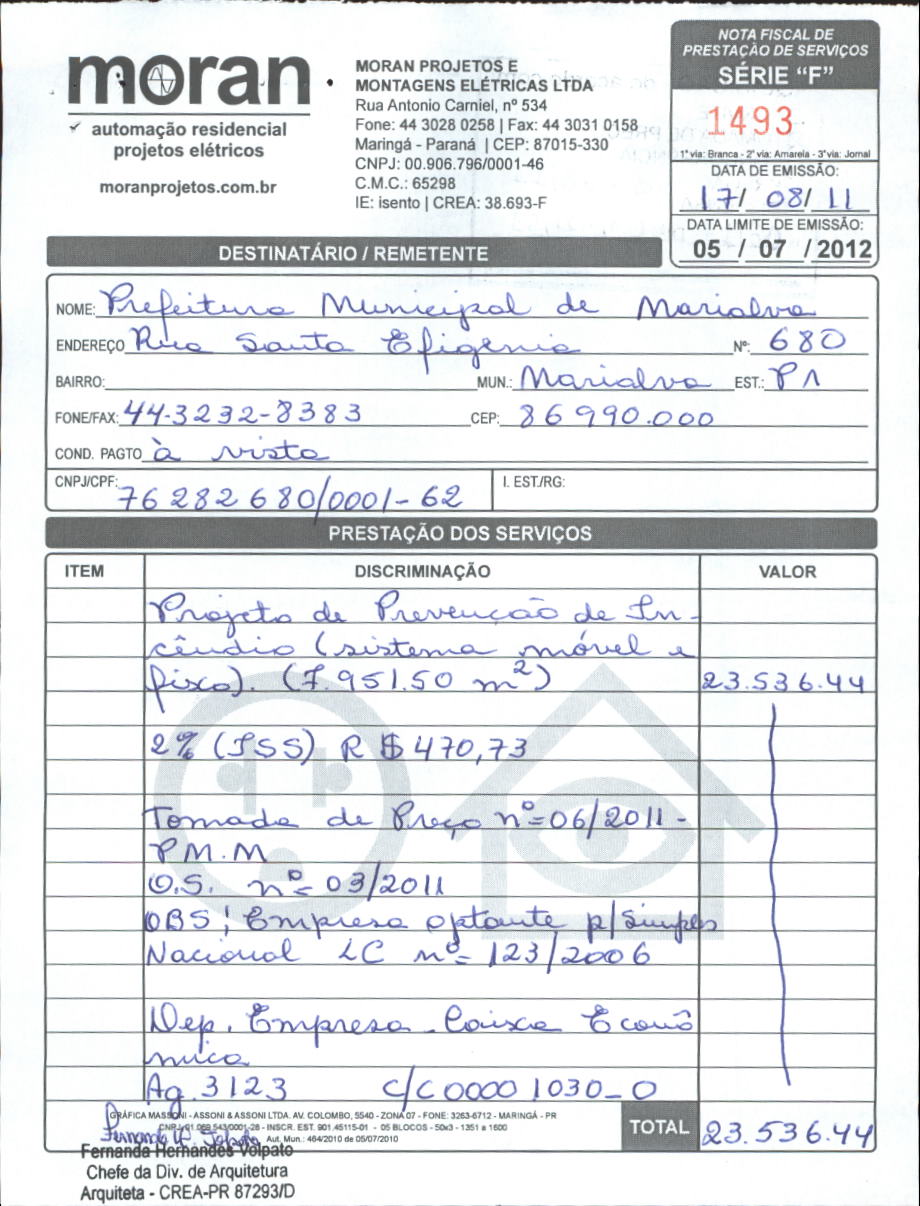 moran
✓ automação residencial
projetos elétricos
moranprojetos.com.br
MORAN PROJETOS E
MONTAGENS ELÉTRICAS LTDA
Rua Antonio Carniel, nº 534
Fone: 44 3028 0258 | Fax: 44 3031 0158
Maringá - Paraná | CEP: 87015-330
CNPJ: 00.906.796/0001-46
C.M.C.: 65298
IE: isento | CREA: 38.693-F
NOTA FISCAL DE
PRESTAÇÃO DE SERVIÇOS
SÉRIE “F”
1493
1ª via: Branca - 2ª via: Amarela - 3ª via: Jornal
DATA DE EMISSÃO:
17/ 08/ 11
DATA LIMITE DE EMISSÃO:
05 / 07 / 2012
DESTINATÁRIO / REMETENTE
NOME: Prefeitura Municipal de Marialva
ENDEREÇO Rua Santa Efigenia Nº: 680
BAIRRO: MUN.: Marialva EST.: Pr
FONE/FAX: 44-3232-8383 CEP: 86990.000
COND. PAGTO à vista
CNPJ/CPF: 76282680/0001-62 I. EST/RG:
PRESTAÇÃO DOS SERVIÇOS
ITEM DISCRIMINAÇÃO VALOR
Projeto de Prevenção de In-
cêndio (sistema móvel e
fixo). (7.951.50 m²) 23.536.44
2% (ISS) R$ 470,73
Tomada de Preço nº=06/2011-
P.M.M
O.S. nº= 03/2011
OBS: Empresa optante p/Simples
Nacional LC nº= 123/2006
Dep. Empresa. Caixa Econô
mica
Ag. 3123 C/C 0000 1030-0
GRÁFICA MASSONI - ASSONI & ASSONI LTDA. AV. COLOMBO, 5540 - ZONA 07 - FONE: 3263-6712 - MARINGÁ - PR
CNPJ 01.069.543/0001-28 - INSCR. EST. 901.45115-01 - 05 BLOCOS - 50x3 - 1351 a 1600
Aut. Mun.: 464/2010 de 05/07/2010
TOTAL 23.536.44
Fernanda Hernandes Volpato
Chefe da Div. de Arquitetura
Arquiteta - CREA-PR 87293/D